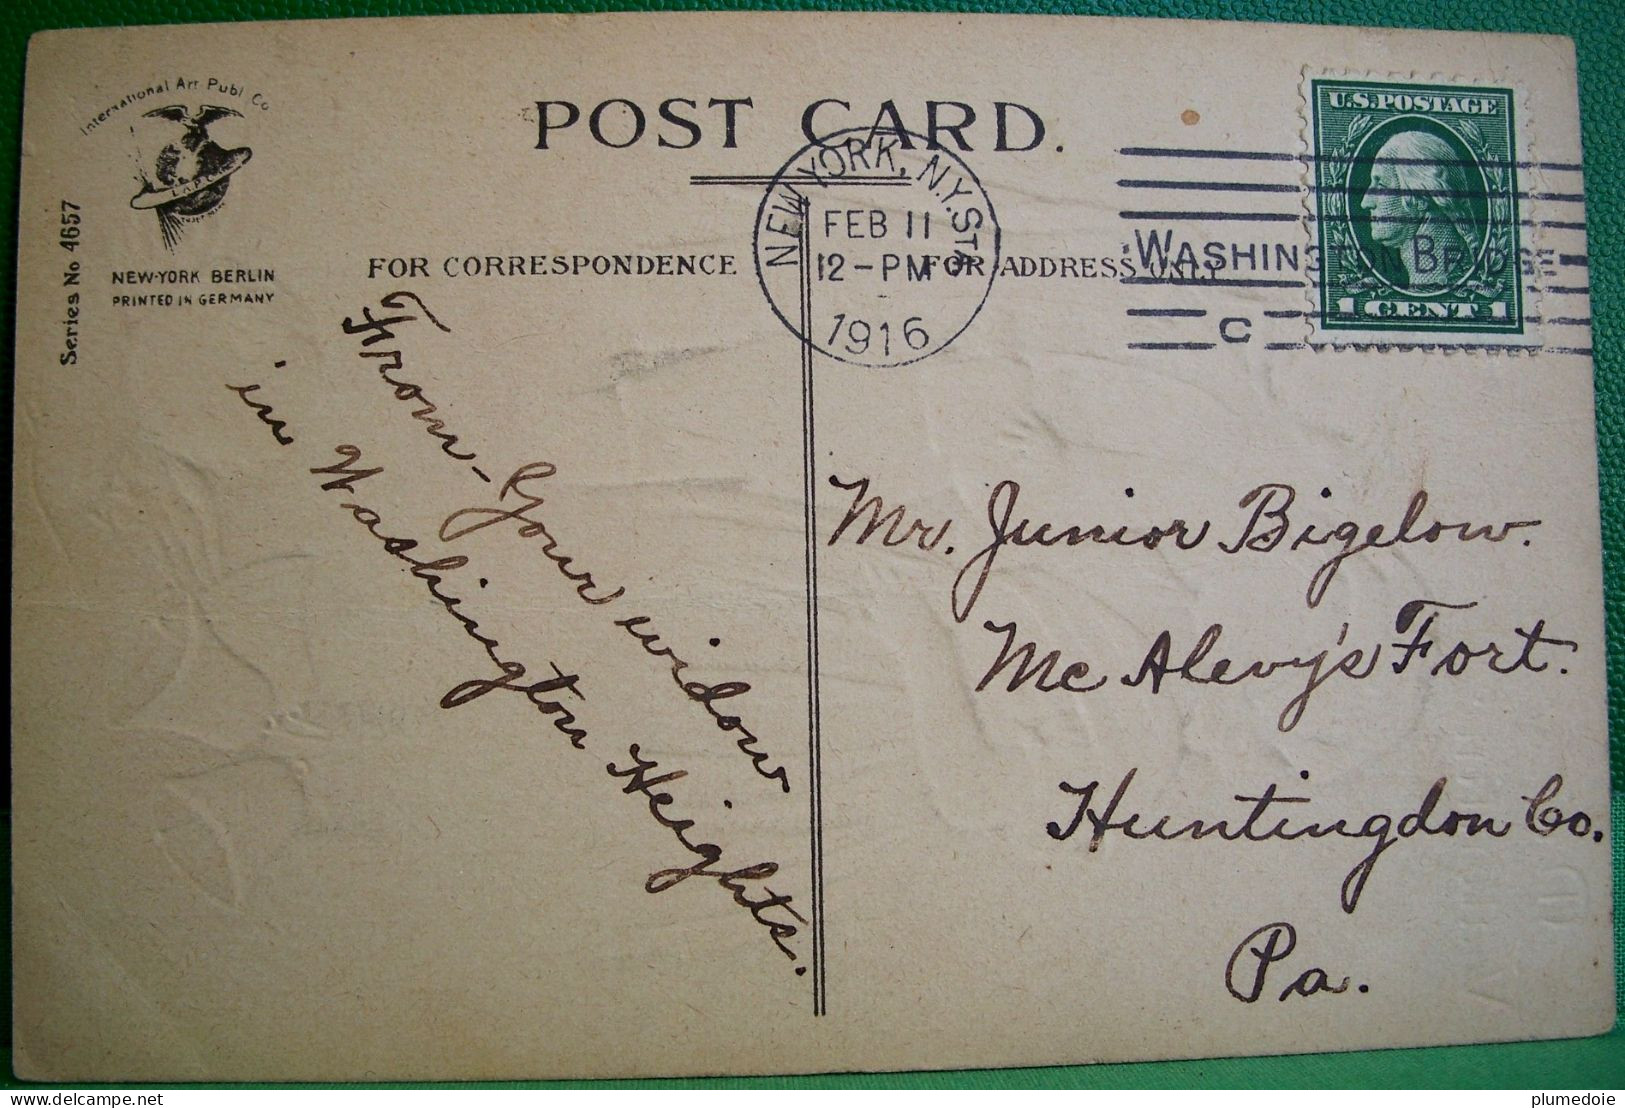 International Art Publ. Co.
I.A.P.C.
NEW-YORK BERLIN
PRINTED IN GERMANY
Series No 4657
POST CARD.
FOR CORRESPONDENCE
FOR ADDRESS ONLY
NEW YORK, N.Y. STA
FEB 11
12-PM
1916
WASHINGTON BRIDGE
C
U.S. POSTAGE
1 CENT 1
From - Your widow
in Washington Heights.
Mr. Junior Bigelow.
Mc Alevy's Fort.
Huntingdon Co.
Pa.
delcampe.net
plumedoie